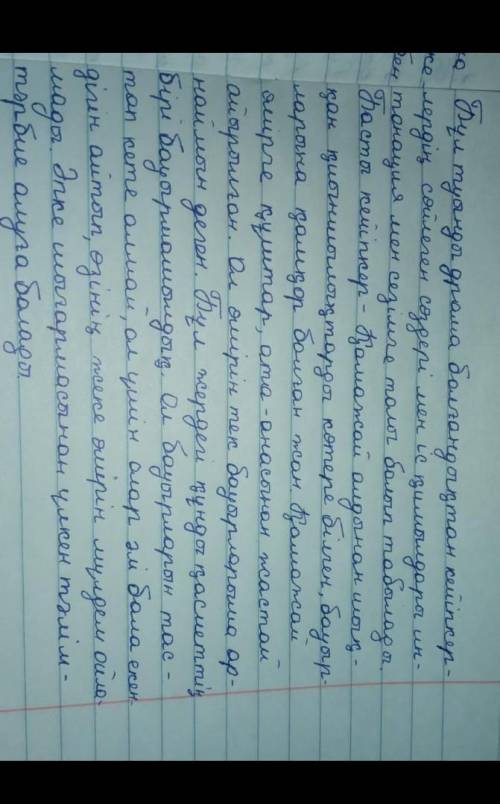 Бұл туынды драма болғандықтан кейіпкер-
лердің сөйлеген сөздері мен іс қимылдары ин-
тонация мен сезімге толы болып табылады.
Басты кейіпкер - Қамажай алдынан шық-
қан қиыншылықтарды көтере білген, бауыр-
ларына қамқор болған жан. Қамажай
өмірге құштар, ата-анасынан жастай
айырылған. Ол өмірін тек бауырларыма ар-
наймын деген. Бұл жердегі құнды қасиеттің
бірі бауырмашылдық. Ол бауырларын тас-
тап кете алмай, ол үшін олар әлі бала екен
дігін айтып, өзінің жеке өмірін мүлдем ойла
мады. Әпке шығармасынан үлкен тәлім-
тәрбие алуға болады.